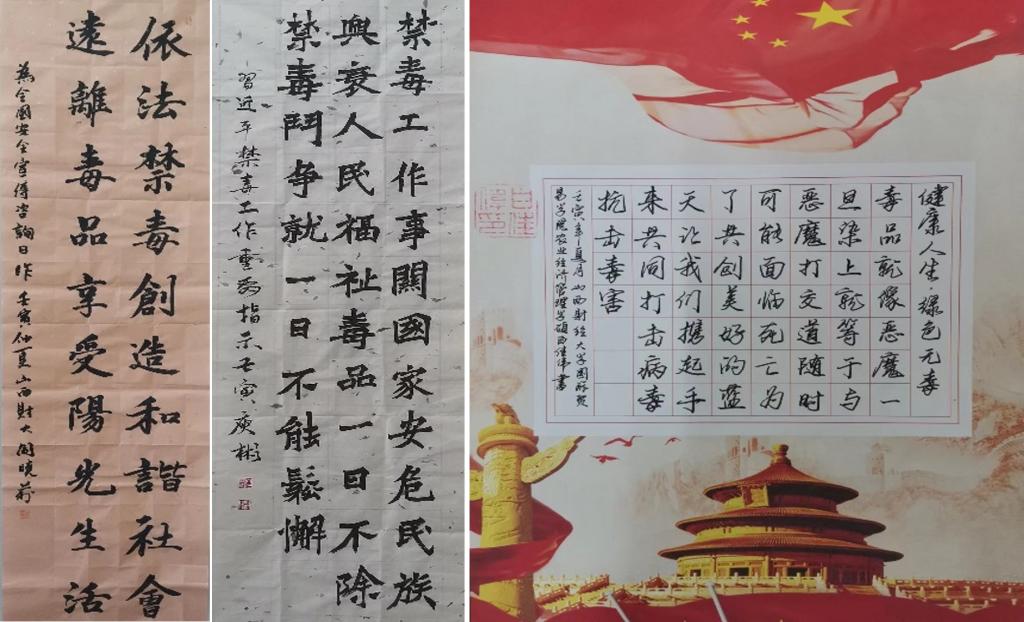 依法禁毒創造和諧社會
遠離毒品享受陽光生活
為全國安全宣傳咨詢日作 壬寅仲夏山西財大閻曉
禁毒工作事關國家安危民族
興衰人民福祉毒品一日不除
禁毒鬥爭就一日不能鬆懈
習近平禁毒工作重要指示 壬寅 彬
健康人生·绿色无毒
毒品就像恶魔一
旦染上就等于与
恶魔打交道随时
可能面临死亡为
了共创美好的蓝
天让我们携起手
来共同打击病毒
抗击毒害
壬寅年夏月山西财经大学国际贸
易学院农业经济管理学硕白佳伟书
白佳伟印